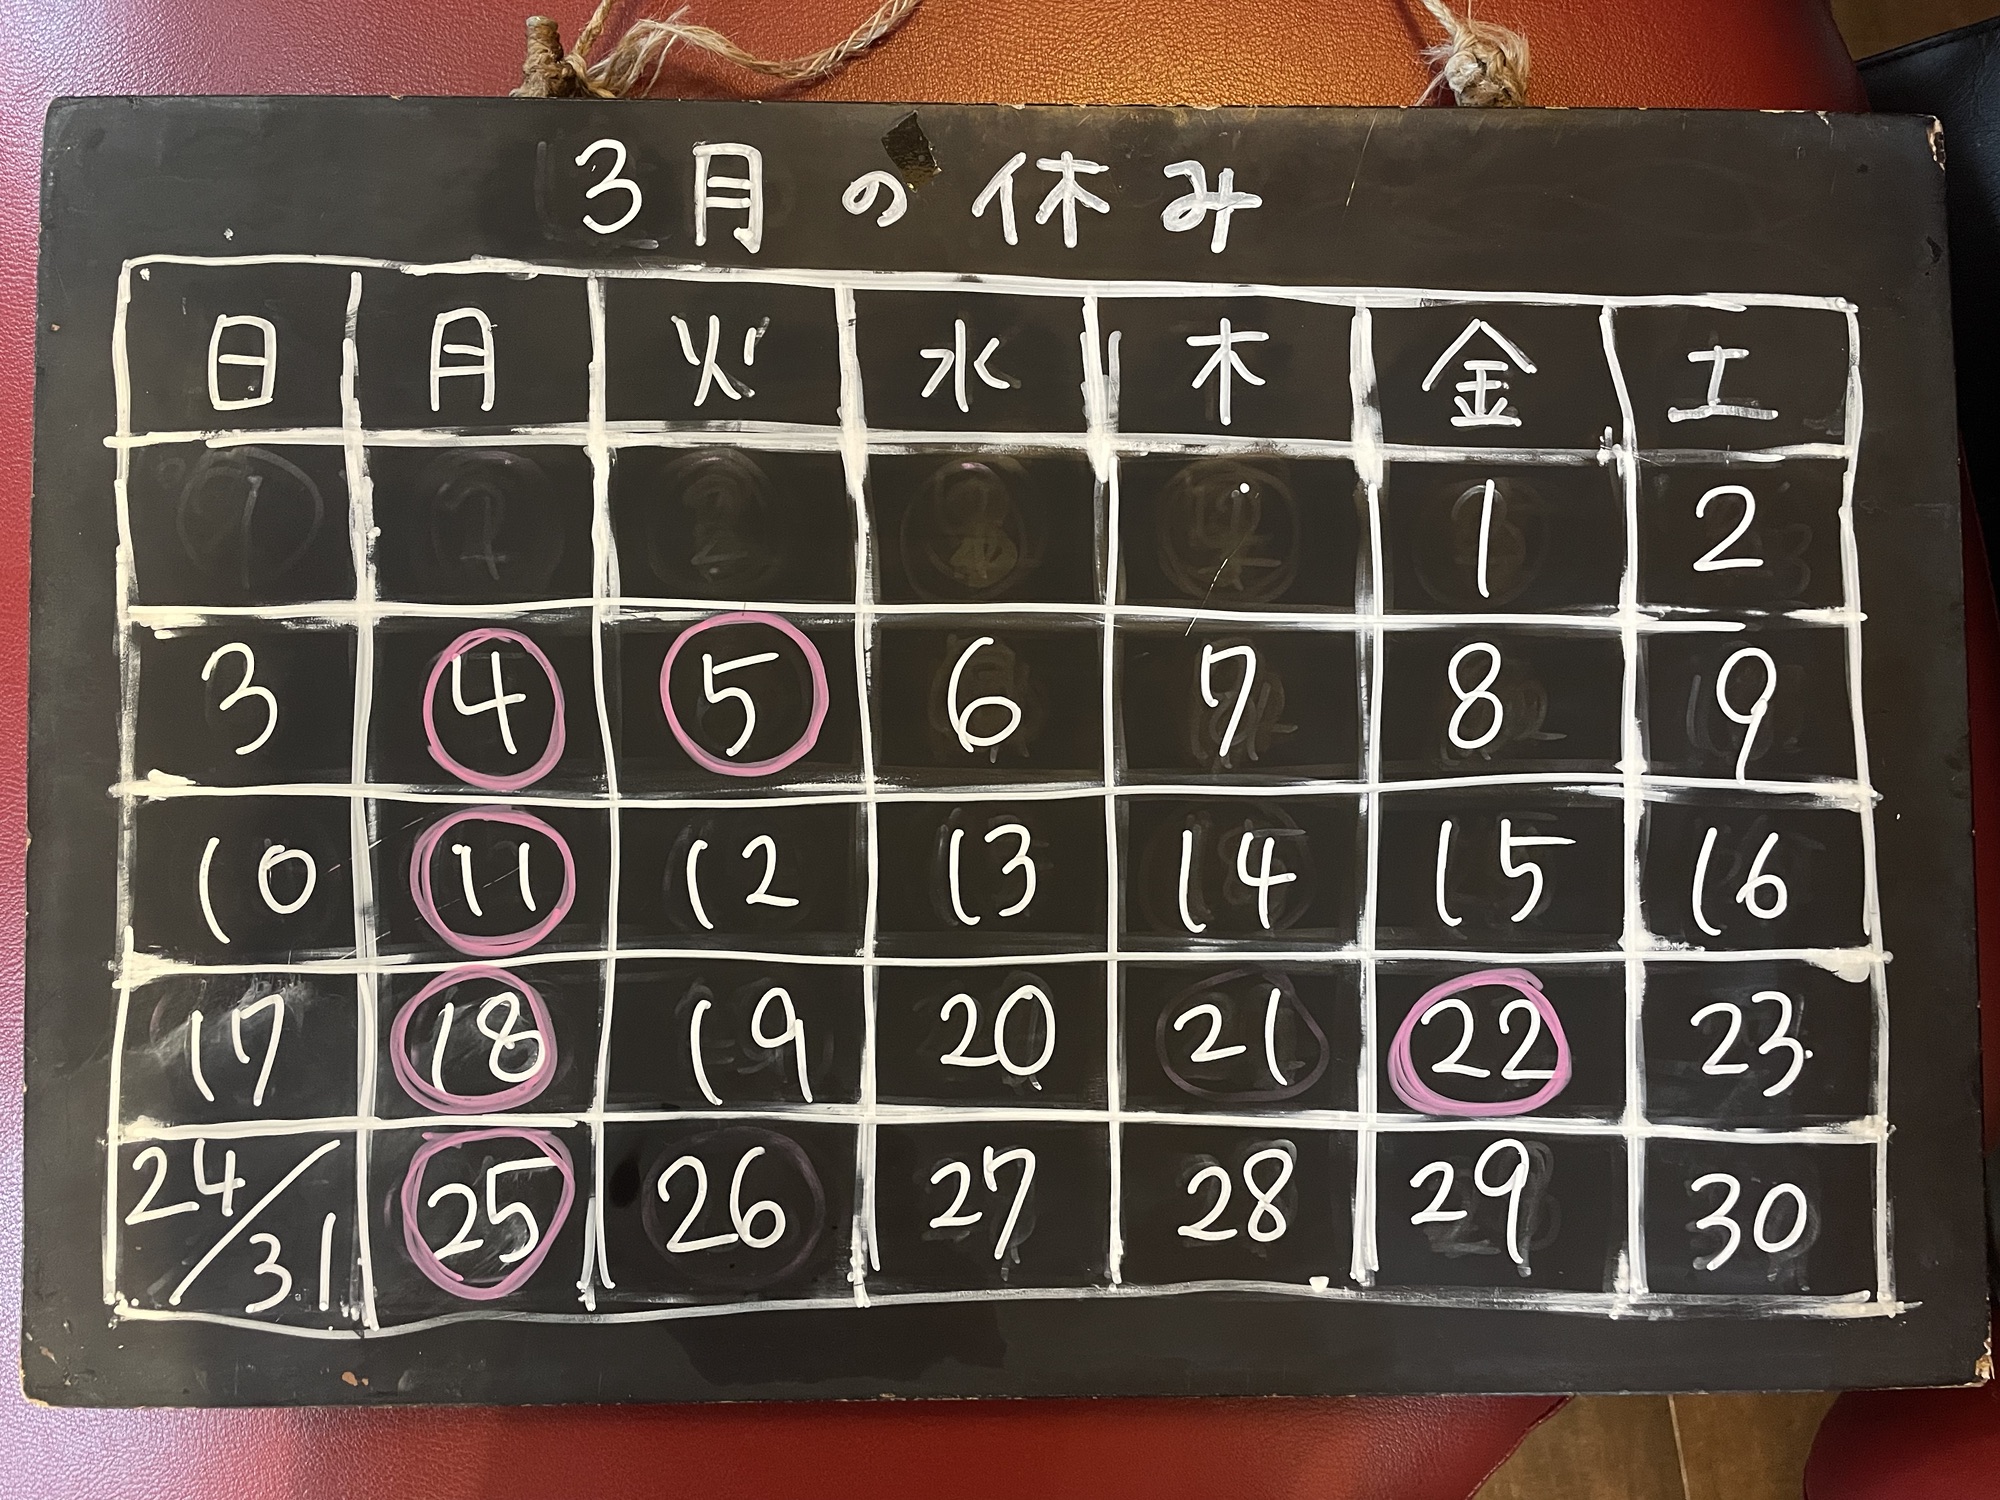 3月の休み
日 月 火 水 木 金 土
1 2
3 4 5 6 7 8 9
10 11 12 13 14 15 16
17 18 19 20 21 22 23
24/31 25 26 27 28 29 30